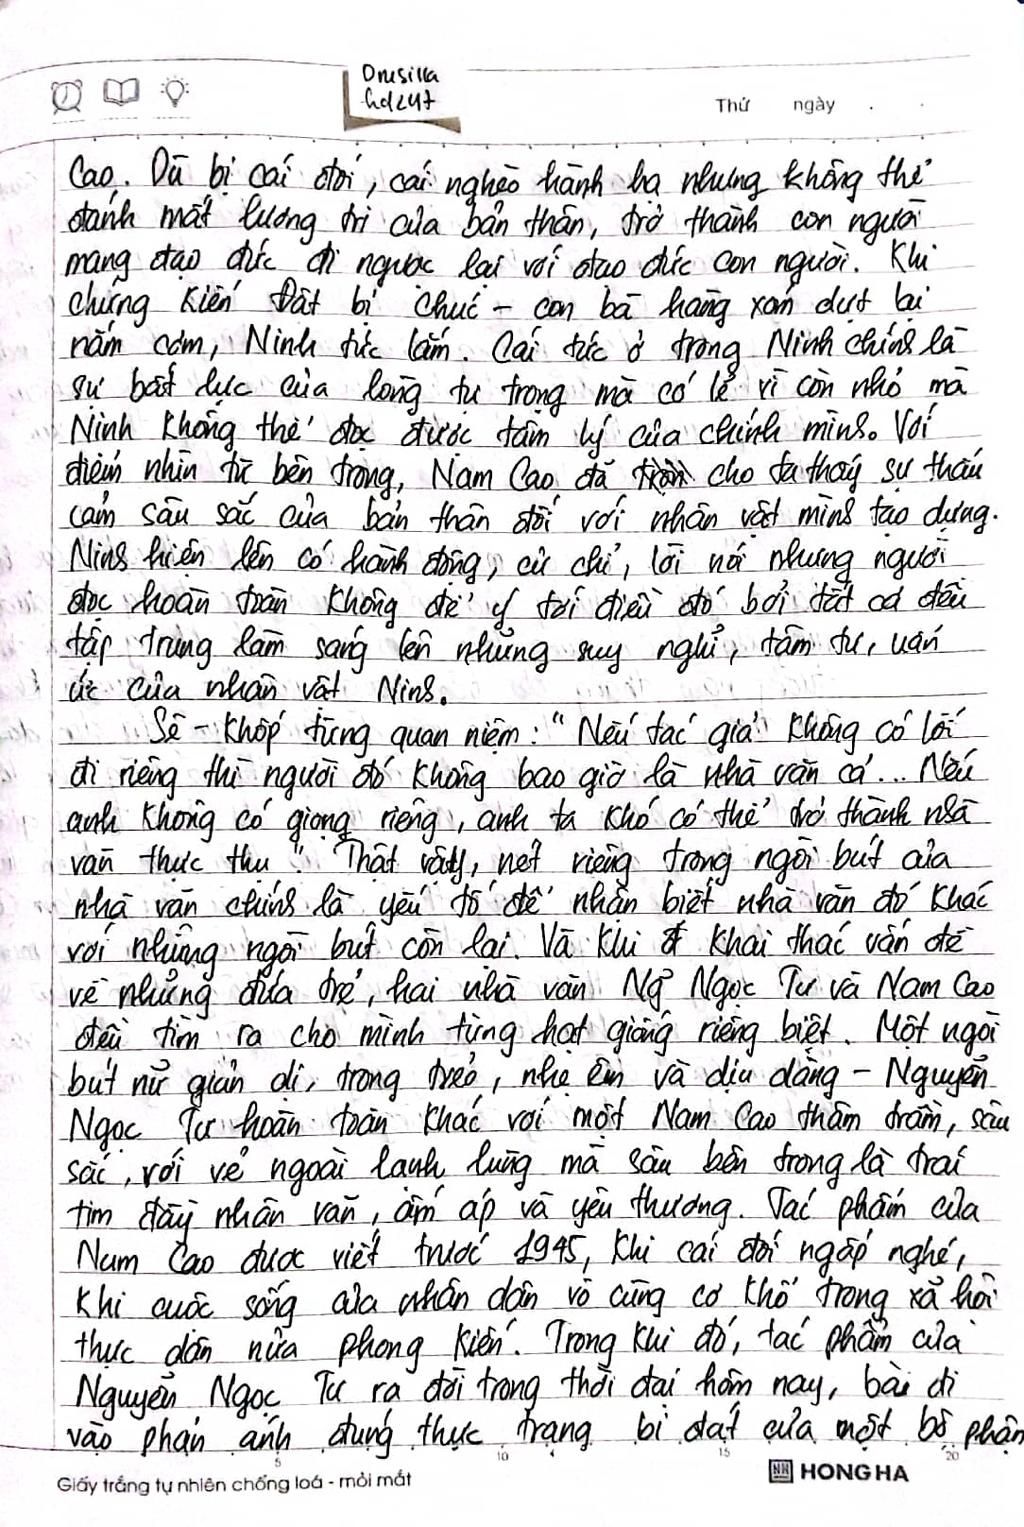 Drusilla
hd247
Thứ ngày . .
Cao. Dù bị cái đói, cái nghèo hành hạ nhưng không thể
đánh mất lương tri của bản thân, trở thành con người
mang đạo đức đi ngược lại với đạo đức con người. Khi
chứng kiến Đật bị Chuc - con bà hàng xóm dựt lại
nắm cơm, Ninh tức lắm. Cái tức ở trong Ninh chính là
sự bất lực của lòng tự trọng mà có lẽ vì còn nhỏ mà
Ninh không thể đọc được tâm lý của chính mình. Với
điểm nhìn từ bên trong, Nam Cao đã cho ta thấy sự thấu
cảm sâu sắc của bản thân đối với nhân vật mình tạo dựng.
Ninh hiện lên có hành động, cử chỉ, lời nói nhưng người
đọc hoàn toàn không để ý tới điều đó bởi tất cả đều
tập trung làm sáng lên những suy nghĩ, tâm tư, uẩn
ức của nhân vật Ninh.
Sê - Khốp từng quan niệm: "Nếu tác giả không có lối
đi riêng thì người đó không bao giờ là nhà văn cả... Nếu
anh không có giọng riêng, anh ta khó có thể trở thành nhà
văn thực thu". Thật vậy, nét riêng trong ngòi bút của
nhà văn chính là yếu tố để nhận biết nhà văn đó khác
với những ngòi bút còn lại. Và khi khai thác vấn đề
về những đứa trẻ, hai nhà văn Ng̃ Ngọc Tư và Nam Cao
đều tìm ra cho mình từng hạt giống riêng biệt. Một ngòi
bút nữ giản dị, trong trẻo, nhẹ êm và dịu dàng - Nguyễn
Ngọc Tư hoàn toàn khác với một Nam Cao thâm trầm, sâu
sắc, với vẻ ngoài lạnh lùng mà sâu bên trong là trái
tim đầy nhân văn, ấm áp và yêu thương. Tác phẩm của
Nam Cao được viết trước 1945, khi cái đói ngấp nghé,
khi cuộc sống của nhân dân vô cùng cơ khổ trong xã hội
thực dân nửa phong kiến. Trong khi đó, tác phẩm của
Nguyễn Ngọc Tư ra đời trong thời đại hôm nay, bài đi
vào phản ánh đúng thực trạng bi đát của một bộ phận
5 10 15 20
Giấy trắng tự nhiên chống loá - mỏi mắt
HH HONG HA